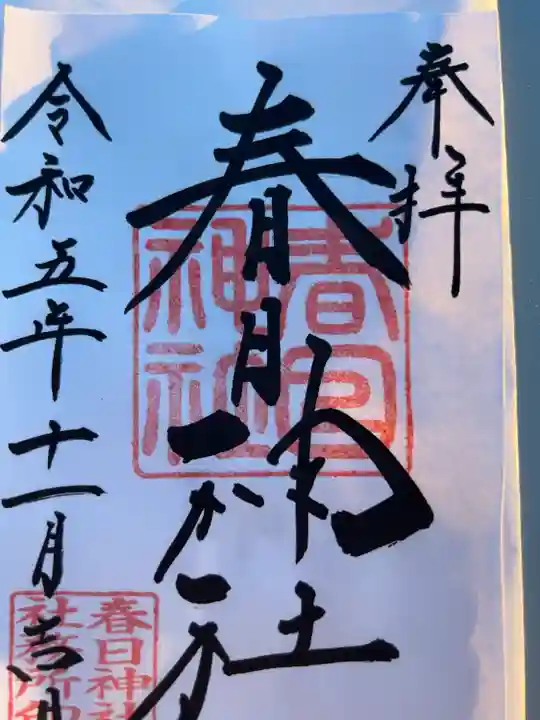 奉拝
春日神社
令和五年十一月吉日
春日
神社
春日神社
社務所印